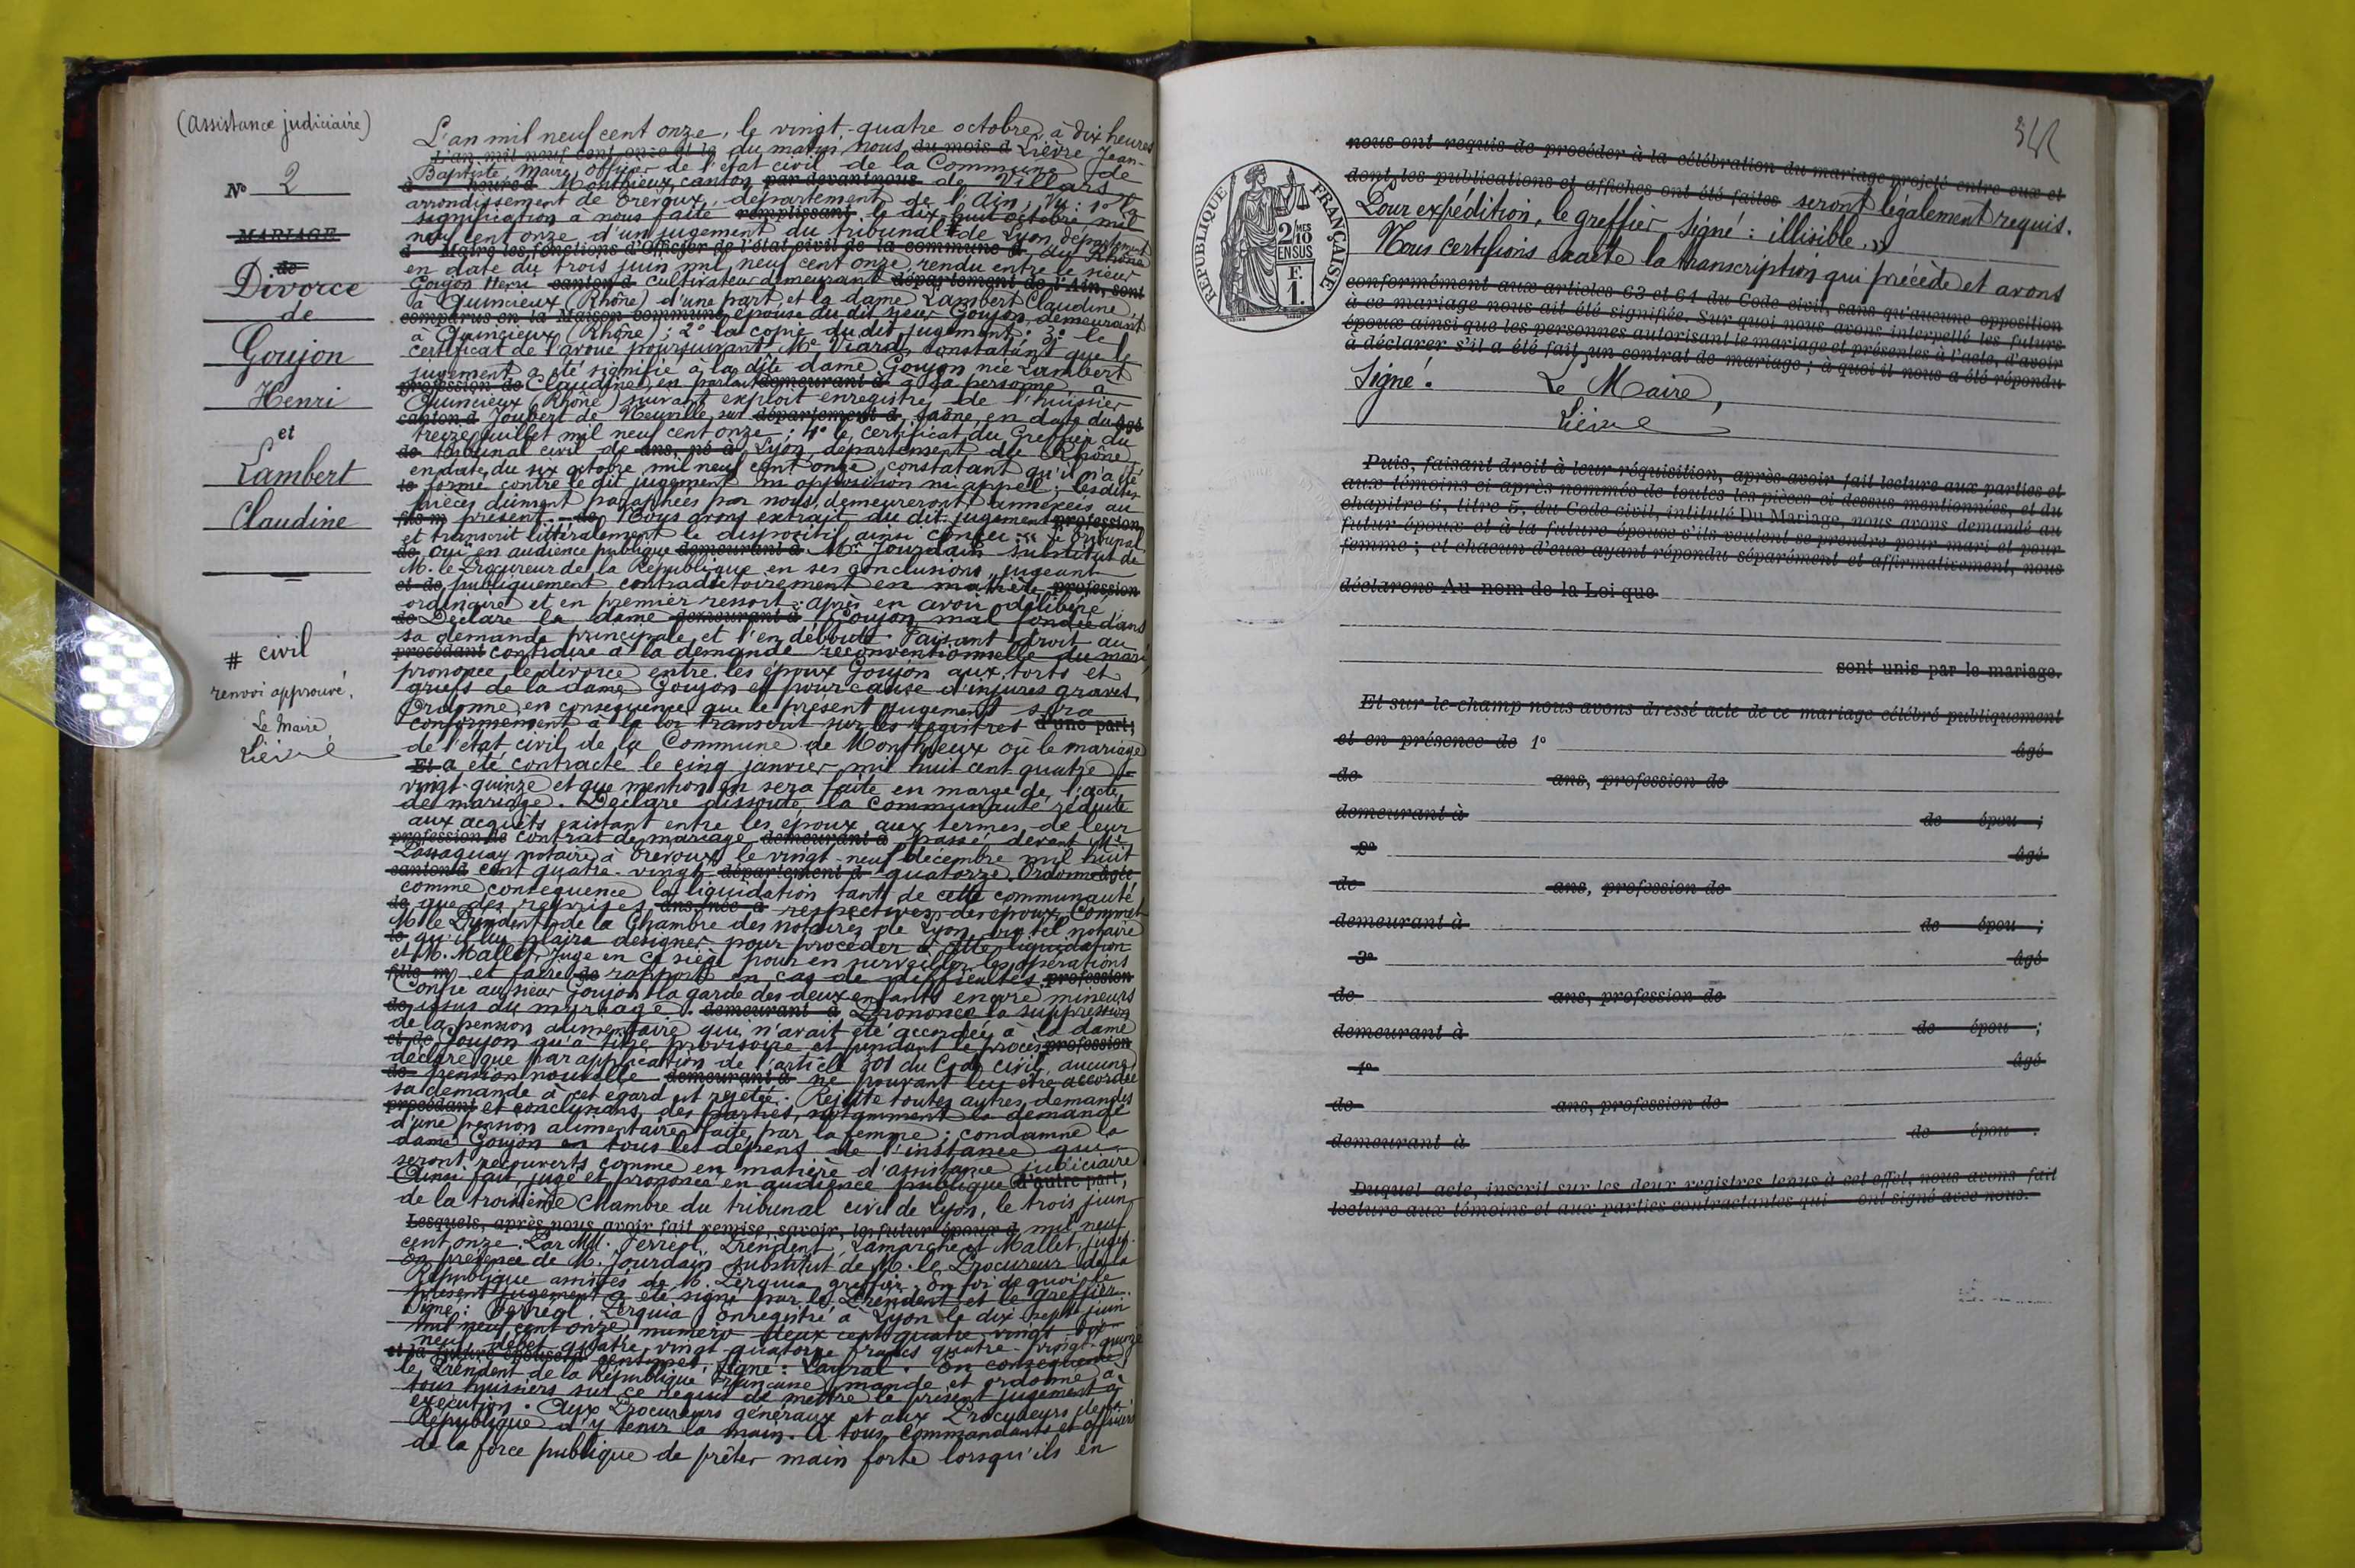 (Assistance judiciaire)
N° 2
MARIAGE
de
Divorce
de
Goujon
Henri
et
Lambert
Claudine
# civil
renvoi approuvé.
Le Maire
Lièvre
L'an mil neuf cent onze, le vingt-quatre octobre, à dix heures
L'an mil neuf cent onze et le du matin, Nous, du mois d Lièvre Jean-
Baptiste, Maire, officier de l'état civil de la Commune de
à heure d Monthieux, canton par devant nous de Villars
arrondissement de Trévoux, département de l'Ain, Vu : 1° la
signification à nous faite remplissant le dix huit octobre mil
neuf cent onze d'un jugement du tribunal # de Lyon, département
d Maire les fonctions d'Officier de l'état civil de la commune d du Rhône
en date du trois juin mil neuf cent onze, rendu entre le sieur
Goujon Henri canton d cultivateur demeurant département de l'Ain, sont
à Quincieux (Rhône) d'une part, et la dame Lambert Claudine,
comparus en la Maison commune épouse du dit sieur Goujon, demeurant
à Quincieux (Rhône) ; 2° la copie du dit jugement ; 3° le
certificat de l'avoué poursuivant Me Viard, constatant que le
jugement a été signifié à la dite dame Goujon née Lambert
profession de Claudine, en parlant demeurant à à sa personne à
Quincieux (Rhône) suivant exploit enregistré de l'huissier
canton d Joubert de Neuville, sur département d Saône, en date du âgé
treize juillet mil neuf cent onze ; 4° le certificat du Greffier du
de tribunal civil de ans, né à Lyon, département du Rhône,
en date du six octobre mil neuf cent onze, constatant qu'il n'a été
le formé contre le dit jugement ni opposition ni appel ; les dites
pièces dûment paraphées par nous, demeureront annexées au
fils m présent. de Nous avons extrait du dit jugement profession
et transcrit littéralement le dispositif ainsi conçu : « Le Tribunal
de, ouï en audience publique demeurant à Mr Jourdain substitut de
M. le Procureur de la République en ses conclusions, jugeant
et de publiquement contradictoirement en matière profession
ordinaire et en premier ressort, après en avoir délibéré :
de Déclare la dame demeurant à Goujon mal fondée dans
sa demande principale et l'en déboute. Faisant droit au
procédant contraire à la demande reconventionnelle du mari
prononce le divorce entre les époux Goujon aux torts et
griefs de la dame Goujon et pour cause d'injures graves.
Ordonne en conséquence que le présent jugement sera
conformément à la loi transcrit sur les registres d'une part;
de l'état civil de la Commune de Monthieux où le mariage
Et a été contracté le cinq janvier mil huit cent quatre
vingt-quinze et que mention en sera faite en marge de l'acte
de mariage. Déclare dissoute la communauté réduite
aux acquêts existant entre les époux aux termes de leur
profession de contrat de mariage demeurant à passé devant Me
notaire à Trévoux le vingt-neuf décembre mil huit
canton d cent quatre-vingt département d quatorze. Ordonne âgée
comme conséquence la liquidation tant de cette communauté
de que des reprises ans, née à respectives des époux. Commet
M. le Président de la Chambre des notaires de Lyon ou tel notaire
le qu'il lui plaira désigner pour procéder à cette liquidation
et M. Mallet, Juge en ce siège pour en surveiller les opérations
fille m et faire de rapport en cas de difficultés profession
Confie au sieur Goujon la garde des deux enfants encore mineurs
de issus du mariage. demeurant à Prononce la suppression
de la pension alimentaire qui n'avait été accordée à la dame
et de Goujon qu'à titre provisoire et pendant le procès, profession
déclare que par application de l'article 301 du Code civil, aucune
de pension nouvelle demeurant à ne pouvant lui être accordée
sa demande à cet égard est rejetée. Rejette toutes autres demandes
procédant et conclusions des parties, notamment la demande
d'une pension alimentaire faite par la femme ; condamne la
dame Goujon en tous les dépens de l'instance qui
seront recouverts comme en matière d'assistance judiciaire
Ainsi fait, jugé et prononcé en audience publique d'autre part,
de la troisième Chambre du tribunal civil de Lyon, le trois juin
Lesquels, après nous avoir fait remise, savoir, le futur époux d mil neuf
cent onze. Par MM. Ferréol, Président, Lamarche et Mallet, juges.
En présence de M. Jourdain substitut de M. le Procureur de la
République assistés de M. Perquia greffier. En foi de quoi le
présent jugement a été signé par le Président et le greffier.
Signé : Ferréol, Perquia. Enregistré à Lyon le dix sept juin
mil neuf cent onze, numéro deux cent quatre-vingt dix
neuf, débet quatre-vingt-quatorze francs quatre-vingt-quinze
et la future épouse d centimes, signé : Layral. En conséquence
le Président de la République Française mande et ordonne à
tous huissiers sur ce requis de mettre le présent jugement à
exécution. Aux Procureurs généraux et aux Procureurs de la
République d'y tenir la main. A tous Commandants et officiers
de la force publique de prêter main forte lorsqu'ils en
RÉPUBLIQUE FRANÇAISE
2 MES
10
EN SUS
F.
1.
nous ont requis de procéder à la célébration du mariage projeté entre eux et
dont les publications et affiches ont été faites seront légalement requis.
Pour expédition, le greffier, signé : illisible. »
Nous certifions exacte la transcription qui précède et avons
conformément aux articles 63 et 64 du Code civil, sans qu'aucune opposition
à ce mariage nous ait été signifiée. Sur quoi nous avons interpellé les futurs
époux ainsi que les personnes autorisant le mariage et présentes à l'acte, d'avoir
à déclarer s'il a été fait un contrat de mariage ; à quoi il nous a été répondu
Signé.
Le Maire,
Lièvre
Puis, faisant droit à leur réquisition, après avoir fait lecture aux parties et
aux témoins ci-après nommés de toutes les pièces ci-dessus mentionnées, et du
chapitre 6, titre 5, du Code civil, intitulé Du Mariage, nous avons demandé au
futur époux et à la future épouse s'ils veulent se prendre pour mari et pour
femme ; et chacun d'eux ayant répondu séparément et affirmativement, nous
déclarons Au nom de la Loi que
sont unis par le mariage.
Et sur-le-champ nous avons dressé acte de ce mariage célébré publiquement
et en présence de 1° âgé
de ans, profession de
demeurant à de épou ;
2° âgé
de ans, profession de
demeurant à de épou ;
3° âgé
de ans, profession de
demeurant à de épou ;
4° âgé
de ans, profession de
demeurant à de épou .
Duquel acte, inscrit sur les deux registres tenus à cet effet, nous avons fait
lecture aux témoins et aux parties contractantes qui ont signé avec nous.